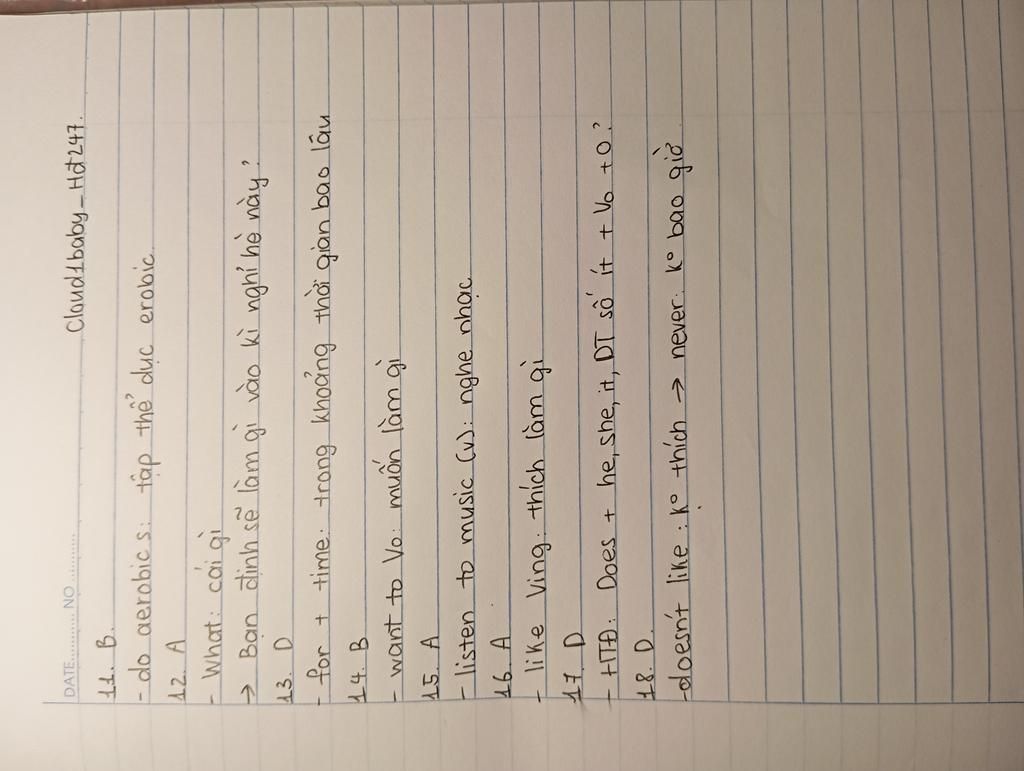 DATE............ NO ............
Claud1baby_Hđ247.
11. B.
- do aerobics: tập thể dục erobic
12. A
- What: cái gì
→ Bạn định sẽ làm gì vào kì nghỉ hè này?
13. D
- for + time: trong khoảng thời gian bao lâu
14. B
- want to Vo: muốn làm gì
15. A
- listen to music (v): nghe nhạc
16. A
- like Ving: thích làm gì
17. D
- HTĐ: Does + he, she, it, DT số ít + Vo + O?
18. D.
- doesn't like: k° thích → never: k° bao giờ